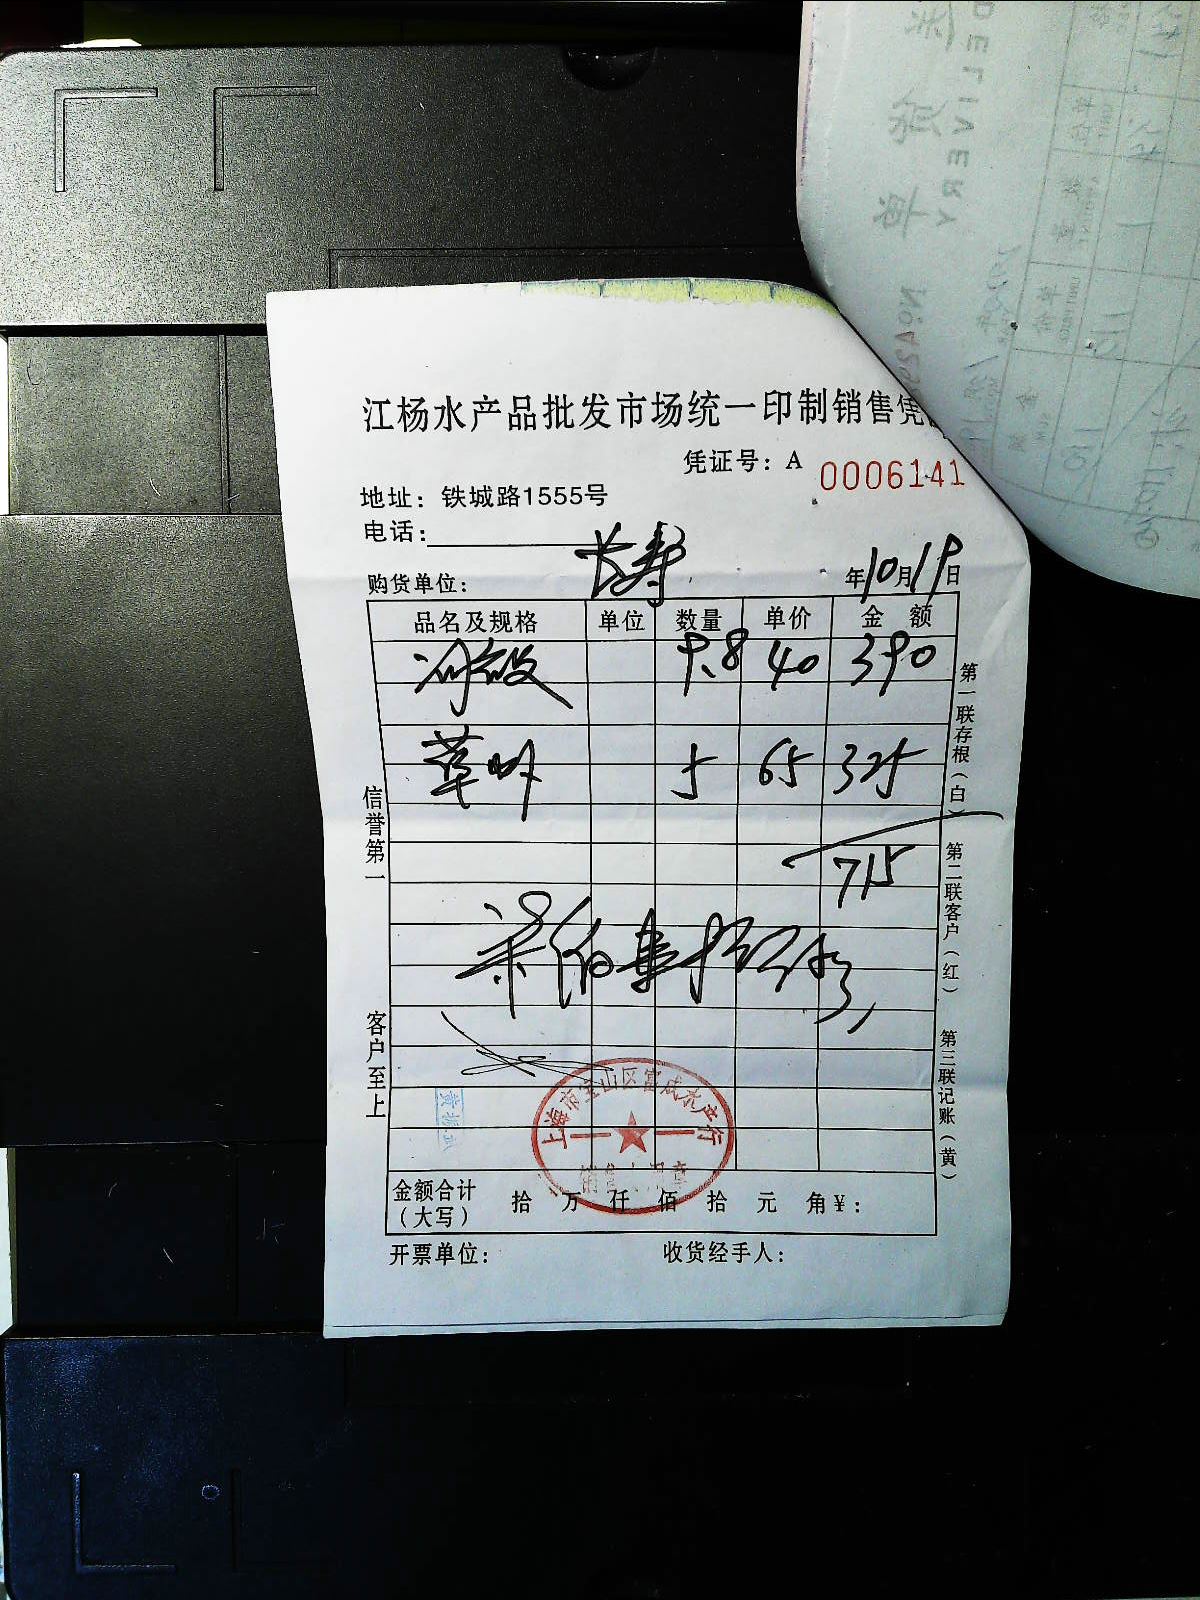 江杨水产品批发市场统一印制销售凭
凭证号：A 0006141
地址：铁城路1555号
电话：
购货单位： 长寿 年10月19日
品名及规格 单位 数量 单价 金额
9.8 40 390
草虾 5 65 325
715
信誉第一
客户至上
第一联存根（白）
第二联客户（红）
第三联记账（黄）
上海市宝山区富成水产行
销售专用章
金额合计（大写） 拾 万 仟 佰 拾 元 角 ¥：
开票单位： 收货经手人：
DELIVERY